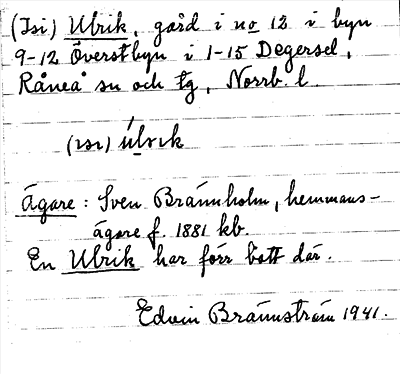 (Isi) Ulrik, gård i no 12 i byn
9-12 Överstbyn i 1-15 Degersel,
Råneå sn och tg, Norrb. l.
(ısı) úlrık
Ägare: Sven Brännholm, hemmans-
ägare f. 1881 kb.
En Ulrik har förr bott där.
Edvin Brännström 1941.